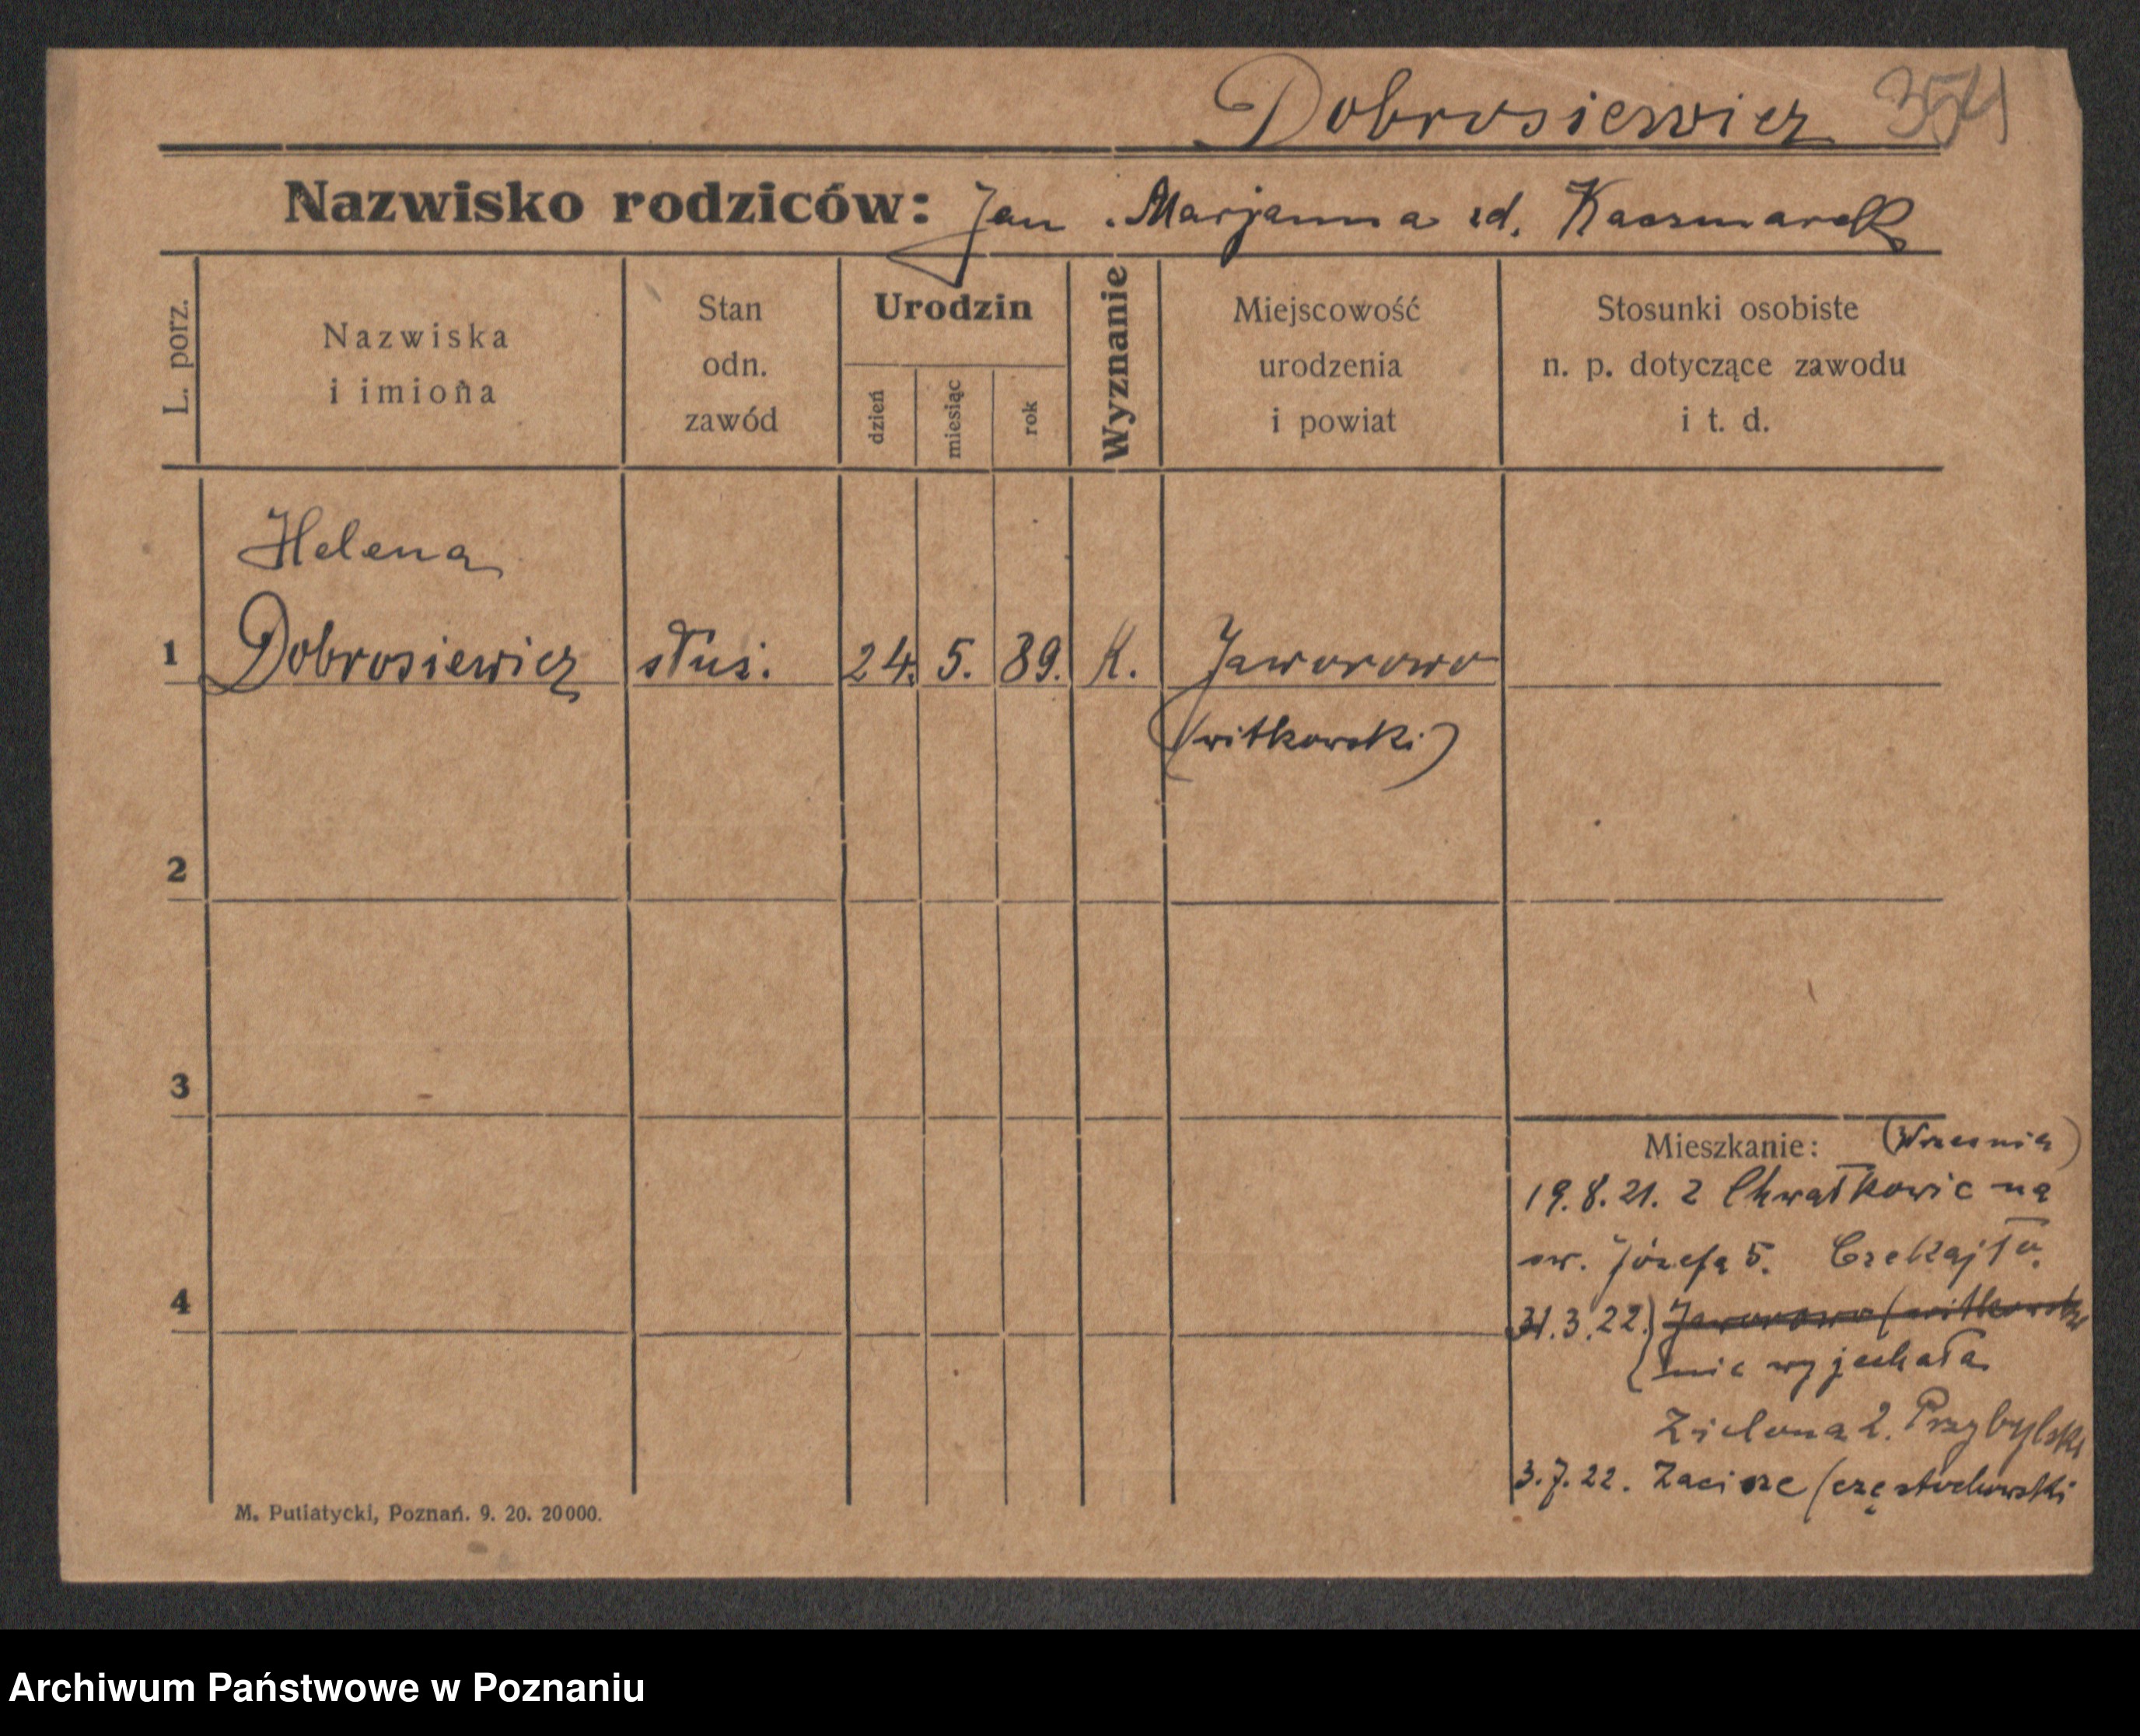 Dobrosiewicz 354
Nazwisko rodziców: Jan . Marjanna zd. Kaczmarek
L. porz.
Nazwiska
i imiona
Stan
odn.
zawód
Urodzin
dzień
miesiąc
rok
Wyznanie
Miejscowość
urodzenia
i powiat
Stosunki osobiste
n. p. dotyczące zawodu
i t. d.
Helena
1 Dobrosiewicz służ. 24. 5. 89. K. Jaworowo
(witkowski)
2
3
Mieszkanie: (Wrzesnia)
19.8.21. z Chwałkowic na
sw. Józefa 5. Czekajło.
4
31.3.22.) Jaworowo (witkowski
nie wyjechała
Zielona 2. Przybylski
3.7.22. Zacisze (częstochowski
M. Putiatycki, Poznań. 9. 20. 20000.
Archiwum Państwowe w Poznaniu